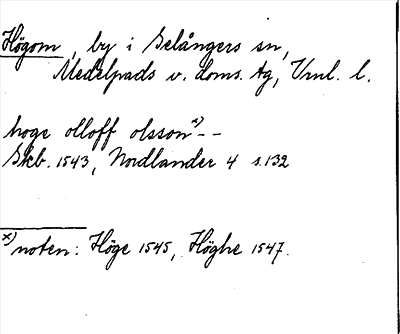 Högom, by i Selångers sn,
Medelpads v. doms. tg, Vnl. l.
hoge olloff olsson x) --
Skb. 1543, Nordlander 4 s. 132
x) noten: Höge 1545, Höghe 1547.